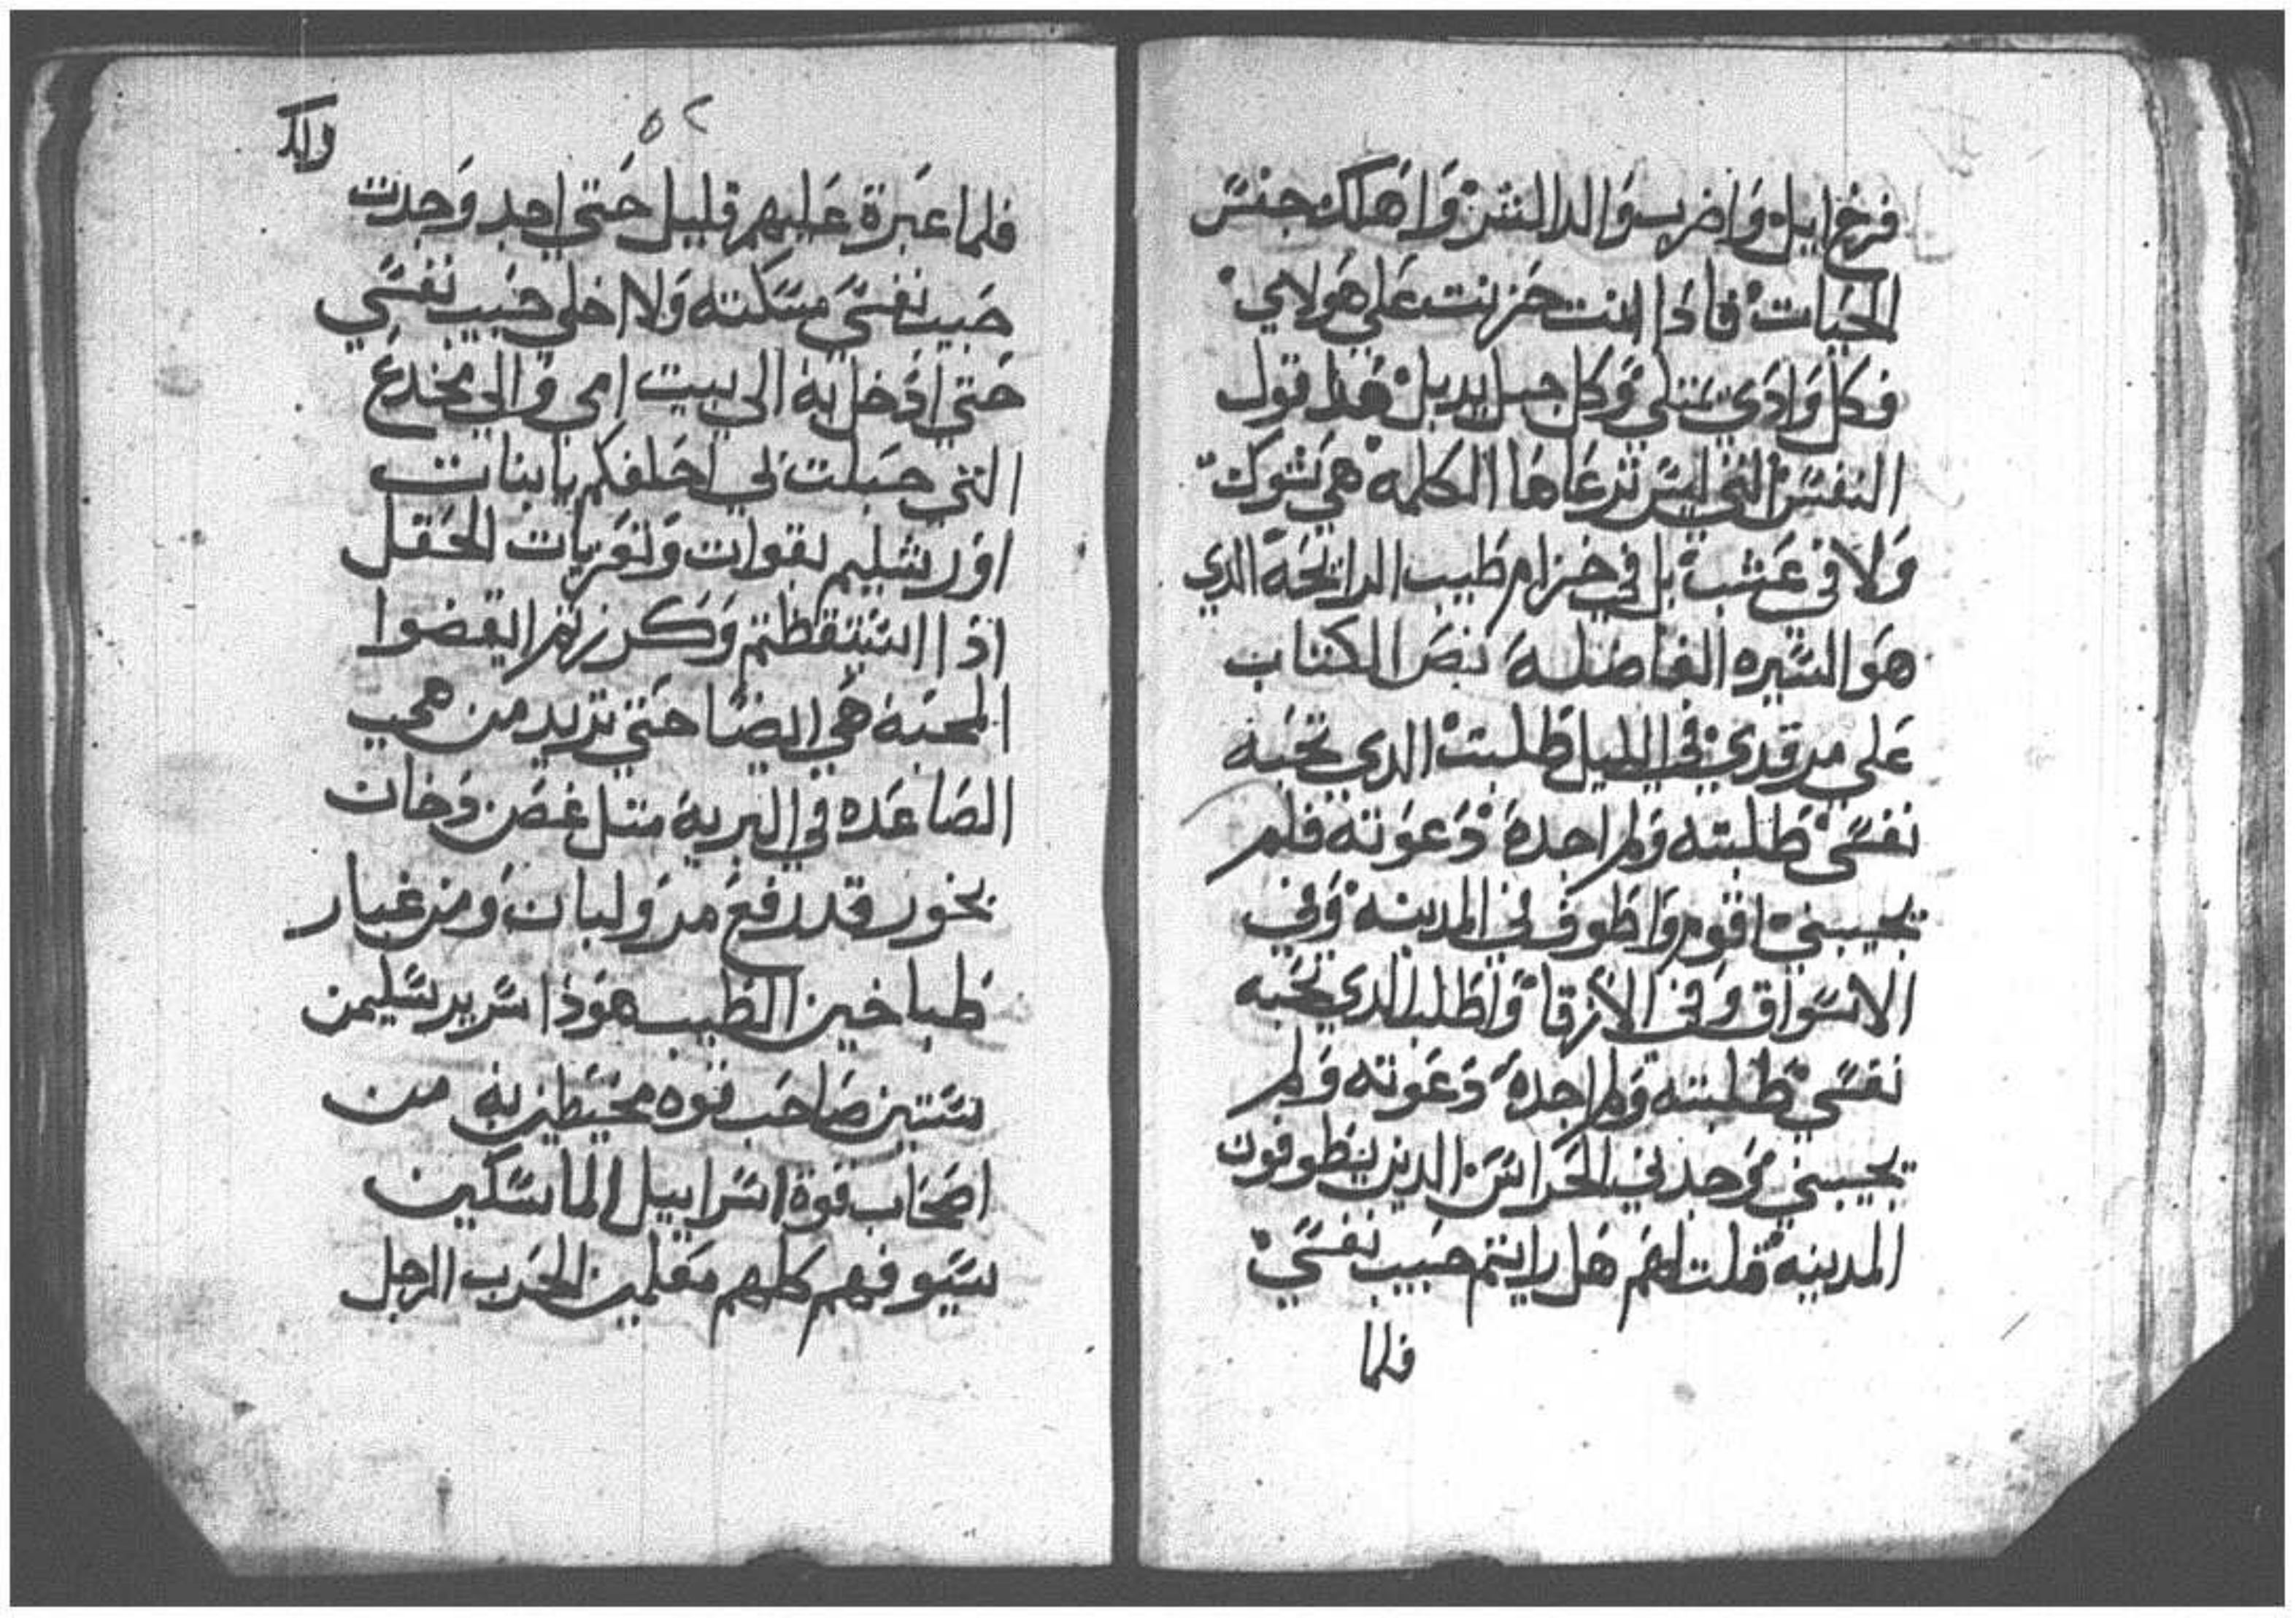 فرخ ايل واضرب والد التنين واهلك جنس
الحيات فاذا انت حزنت على هولاي
فكل وادي يمتلى وكل جبل يدبل هذا قول
النفس التي ليس ترعاها الكلمه في شوك
ولا في عشب بل في خزام طيب الرايحة الدي
هو السيره الفاضلة نص الكتاب
على مرقدي في الليل طلبت الدي تحبه
نفسي طلبته ولم اجده دعوته فلم
يجيبني اقوم واطوف في المدينه وفي
الاسواق وفي الازقا واطلب الدي تحبه
نفسي طلبته ولم اجده دعوته ولم
يجيبني وجدني الحراس الدين يطوفون
المدينه قلت لهم هل رايتم حبيب نفسي
فلما
ولد
٥٢
فلما عبرة عليهم قليل حتي اجد وجدت
حبيب نفسي مسكته ولا اخلي حبيب نفسي
حتي ادخل به الى بيت امي والي مخدع
التي حبلت بي احلفكم يا بنات
اورشليم بقوات وتعزيات الحقل
اذا استيقظتم وكرزتم انهضوا
المحبة هي ايضا حتي تريد من هي
الصاعده في البرية متل غصن دخان
بخور قد رفع مر ولبان ومن غبار
طباخين الطيب هوذا سرير سليمن
ستين صاحب قوه محيطين به من
اصحاب قوة اسراييل الماسكين
سيوفهم كلهم معلمين الحرب الرجل